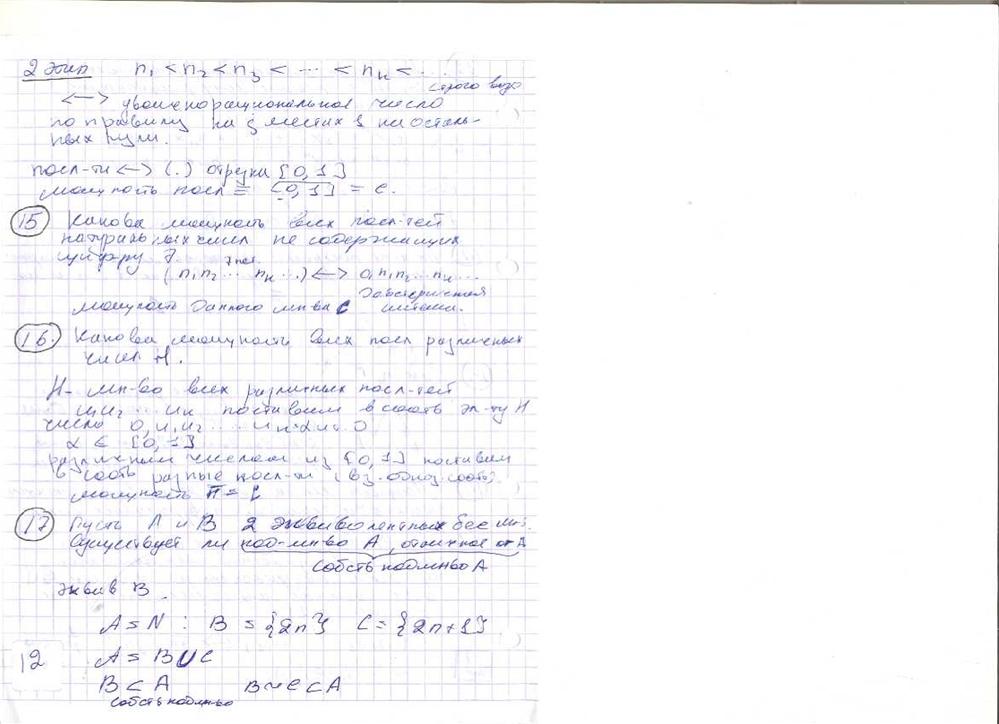 2 Этап n₁ < n₂ < n₃ < ... < nₖ < ...
строго возр
<—> двоичнорациональное число
по правилу на j местах 1 на осталь-
ных нули.
посл-ти <—> (.) отрезка [0, 1]
мощность посл = [0, 1] = c.
15 Какова мощность всех посл-тей
натуральных чисел не содержащих
цифру 7.
7 нет
(n₁ n₂ ... nₖ ...) <—> 0, n₁ n₂ ... nₖ ...
мощность данного мн-ва C
16. Какова мощность всех посл различных
чисел
H- мн-во всех различных посл-тей
поставим в соотв эл-ту H
число 0,
α ∈ [0, 1]
различным числам из [0, 1] поставим
в соотв разные посл-ти (вз. одноз. соотв).
мощность H =
17 Пусть A и B 2 эквивалентных беск мн.
Существует ли под-мн-во A, отличное от A
собств подмн-во A
эквив B.
A = N : B = {2n} C = {2n+1}
A = B ∪ C
12
B ⊂ A B ~ C ⊂ A
собств подмн-во